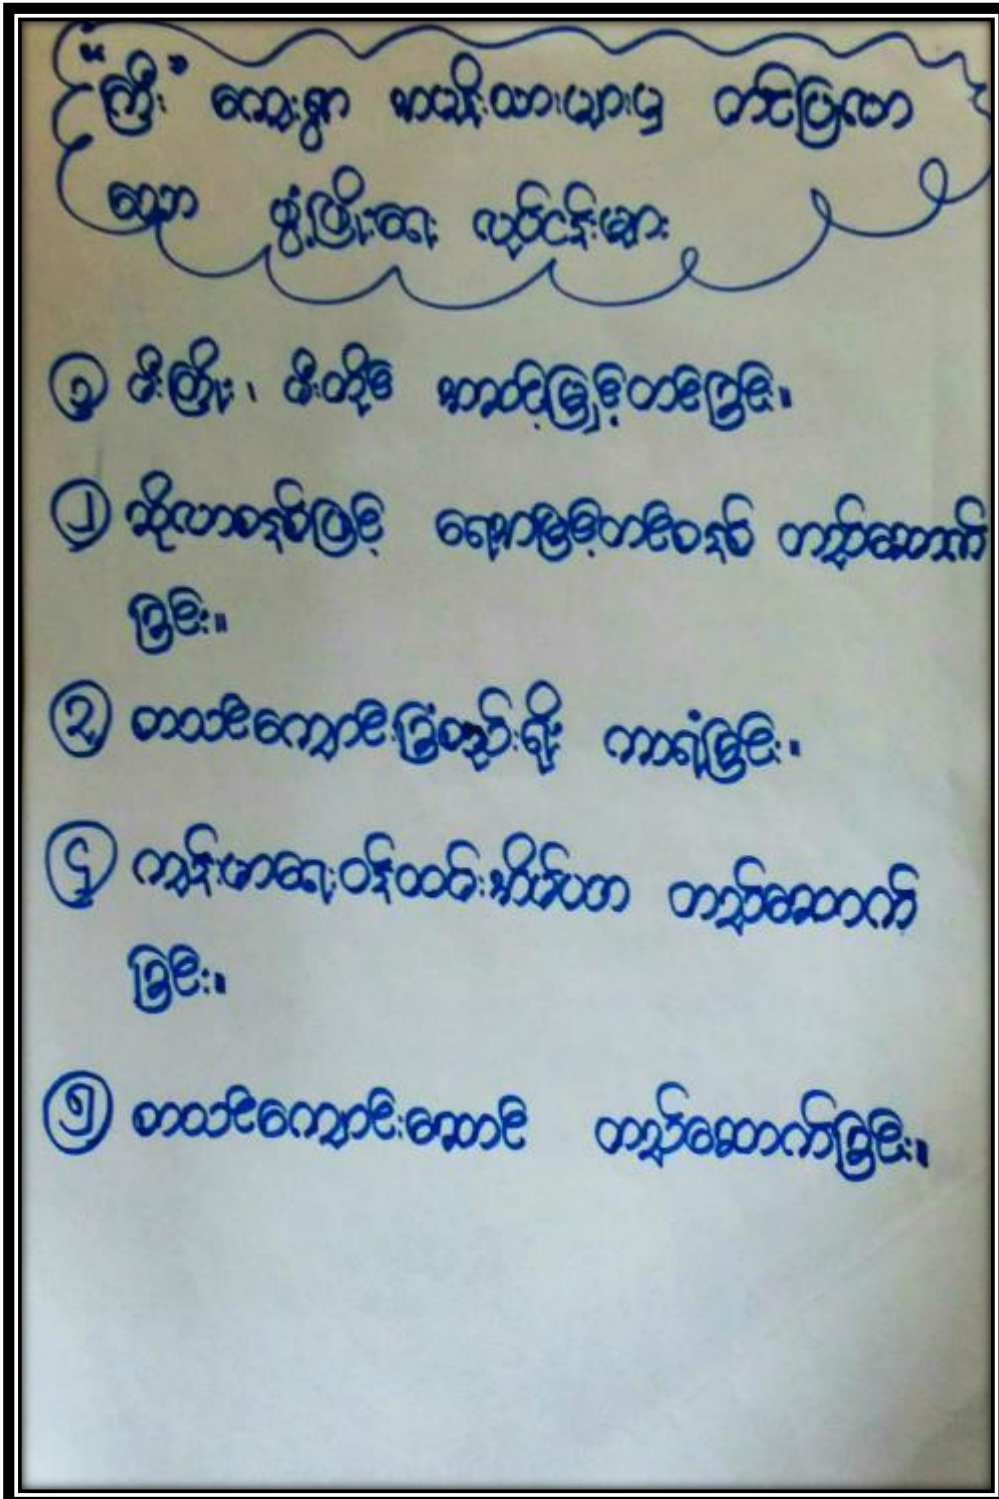 "ကြီး" ကျေးရွာ အမျိုးသားများမှ တင်ပြလာ
သော ဖွံ့ဖြိုးရေး လုပ်ငန်းများ
၁ မီးကြိုး၊ မီးတိုင် အဆင့်မြှင့်တင်ခြင်း။
၂ ဆိုလာစနစ်ဖြင့် ရေအားမြှင့်တင်စနစ် တည်ဆောက်
ခြင်း။
၃ စာသင်ကျောင်းခြံစည်းရိုး ကာရံခြင်း။
၄ ကျန်းမာရေးဝန်ထမ်းအိမ်ယာ တည်ဆောက်
ခြင်း။
၅ စာသင်ကျောင်းဆောင် တည်ဆောက်ခြင်း။